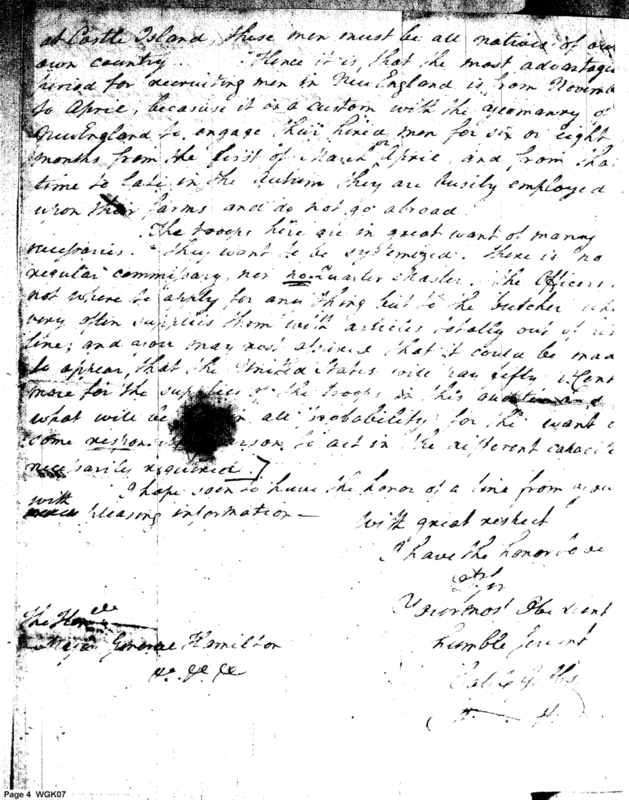 at Castle Island these men must be all natives of our
own country Hence it is, that the most advantage
period for recruiting men in New England is from Novembe
to April, because it is a custom with the yeomanry of
New England to engage their hired men for six or eight
months from the first of March or April, and from tha
time to late in the Autum they are busily employed
upon their farms and do not go abroad.
The troops here are in great want of many
necessaries. They want to be systemized. There is no
regular commissary, nor no Quarter Master. The Officers
not where to apply for any thing but to the butcher who
very often supplies them with articles totally out of his
line; and you may rest assured that it could be mad
to appear, that the United States will pay fifty Cent
more for the supplies of the troops in this and
what will be in all probability, for the want of
some person to act in the different capacite
necessaries required.]
I hope soon to have the honor of a line from you
with pleasing information —
With great respect
I have the honor to be
Sir
Your most Obedient
humble servant
Caleb Gibbs
The Honble
Major General Hamilton
&c &c &c
Page 4 WGK07